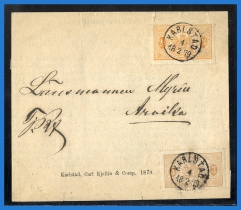 KARLSTAD
18 2 79
Länsmannen Myrin
Arvika
Karlstad, Carl Kjellin & Comp. 1879.
KARLSTAD
18 2 79